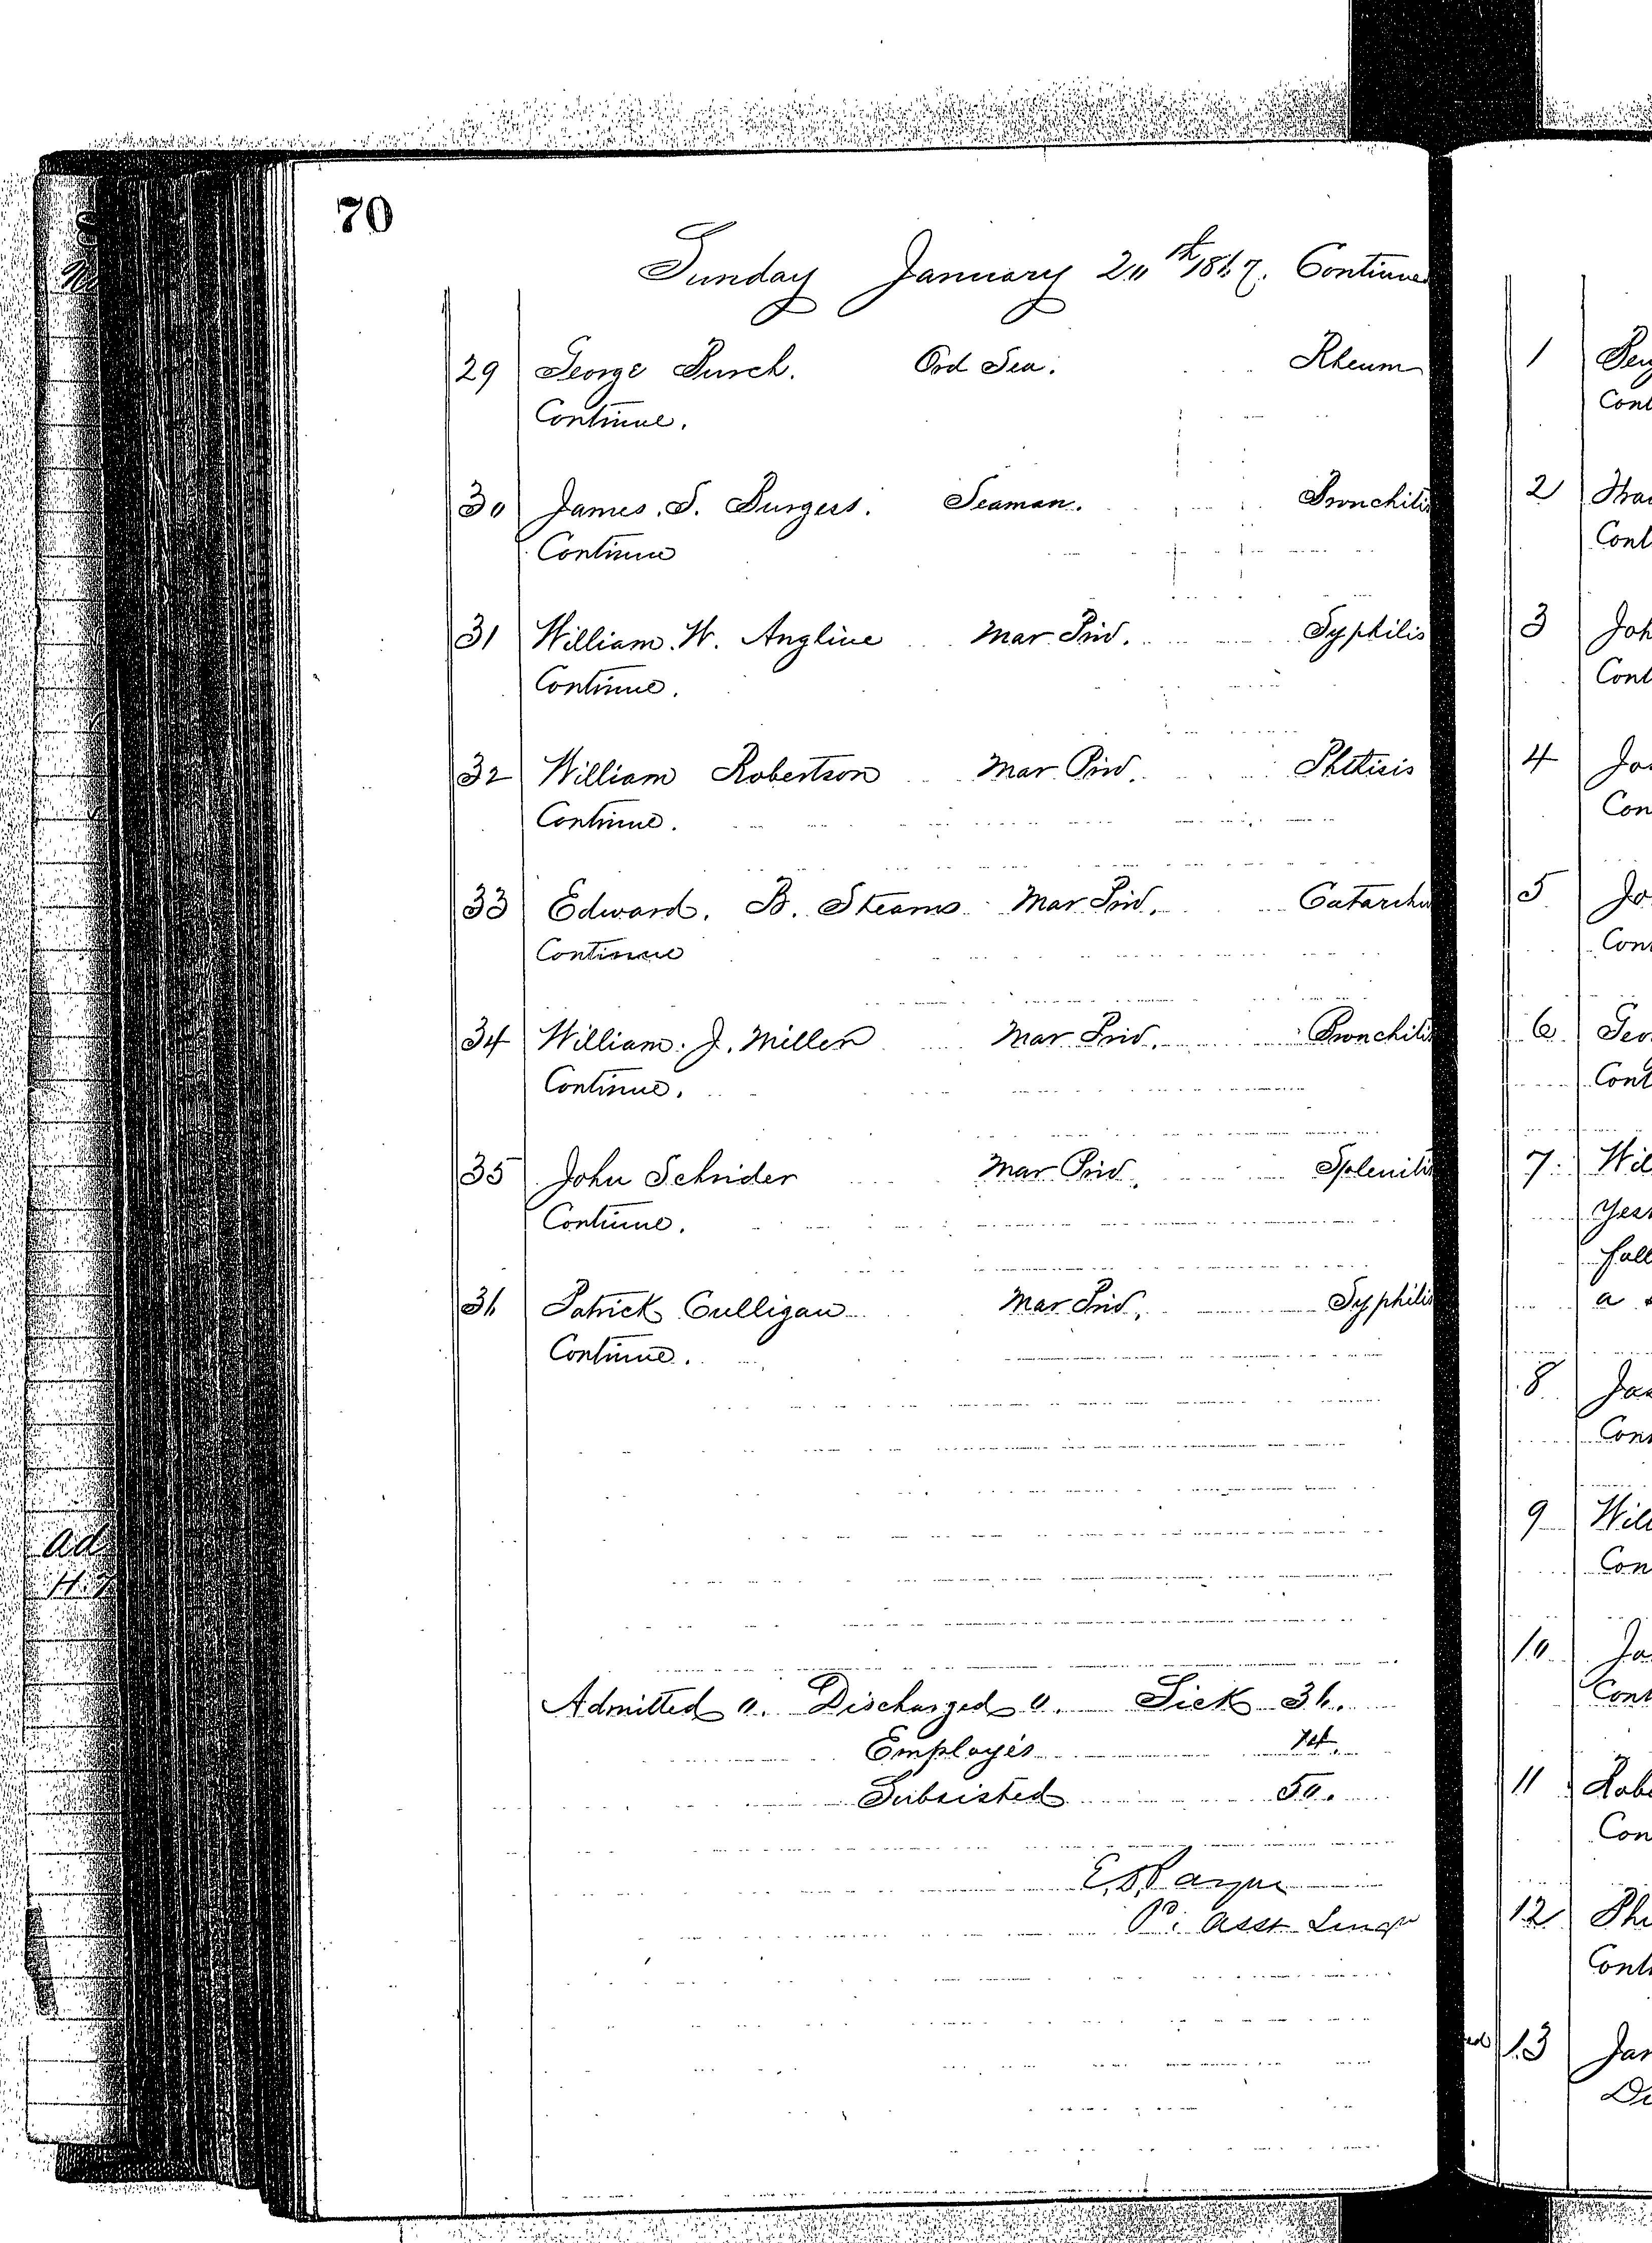 70
Sunday January 20th 1867. Continued
29 George Burch. Ord Sea. Rheum
Continue.
30 James. S. Burgess. Seaman. Bronchitis
Continue
31 William. W. Angline Mar Priv. Syphilis
Continue.
32 William Robertson Mar Priv. Phthisis
Continue.
33 Edward. B. Stearns Mar Priv. Catarrhu
Continue
34 William. J. Miller Mar Priv. Bronchitis
Continue.
35 John Schrider Mar Priv. Splenitis
Continue.
36 Patrick Culligan Mar Priv. Syphilis
Continue.
Admitted 0. Discharged 0. Sick 36.
Employés 14.
Subsisted 50.
P. Asst Surgn
1
Cont
2
Cont
3 Joh
Cont
4
Con
5 Jo
Con
6 Geo
Cont
7 Wil
Yes
full
a
8 Jas
Con
9 Will
Con
10 Ja
Cont
11 Robe
Con
12
Cont
13 Jam
Di
ad
H.